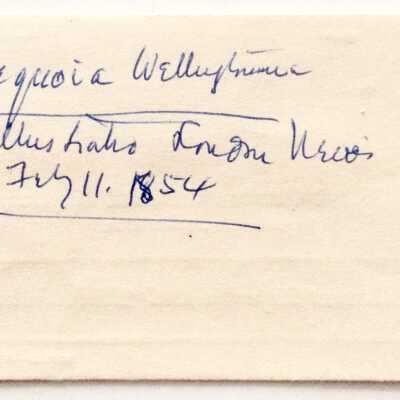 equoia Wellingtonia
llustrated London News
Feb 11. 1854